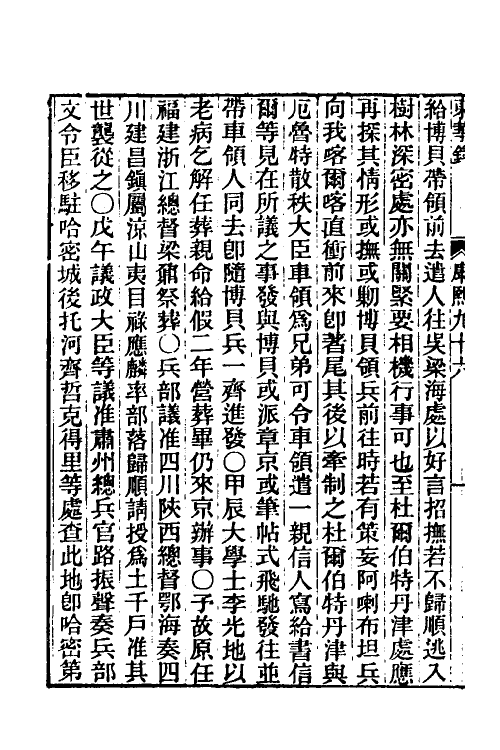 東華錄 康熙九十六 一
給博貝帶領前去遣人往吳梁海處以好言招撫若不歸順逃入
樹林深密處亦無關緊要相機行事可也至杜爾伯特丹津處應
再探其情形或撫或勦博貝領兵前往時若有策妄阿喇布坦兵
向我喀爾喀直衝前來卽著尾其後以牽制之杜爾伯特丹津與
厄魯特散秩大臣車領爲兄弟可令車領遣一親信人寫給書信
爾等見在所議之事發與博貝或派章京或筆帖式飛馳發往並
帶車領人同去卽隨博貝兵一齊進發〇甲辰大學士李光地以
老病乞解任葬親命給假二年營葬畢仍來京辦事〇予故原任
福建浙江總督梁鼐祭葬〇兵部議准四川陝西總督鄂海奏四
川建昌鎭屬涼山夷目祿應麟率部落歸順請授爲土千戶准其
世襲從之〇戊午議政大臣等議准肅州總兵官路振聲奏兵部
文令臣移駐哈密城後托河齊哲克得里等處查此地卽哈密第